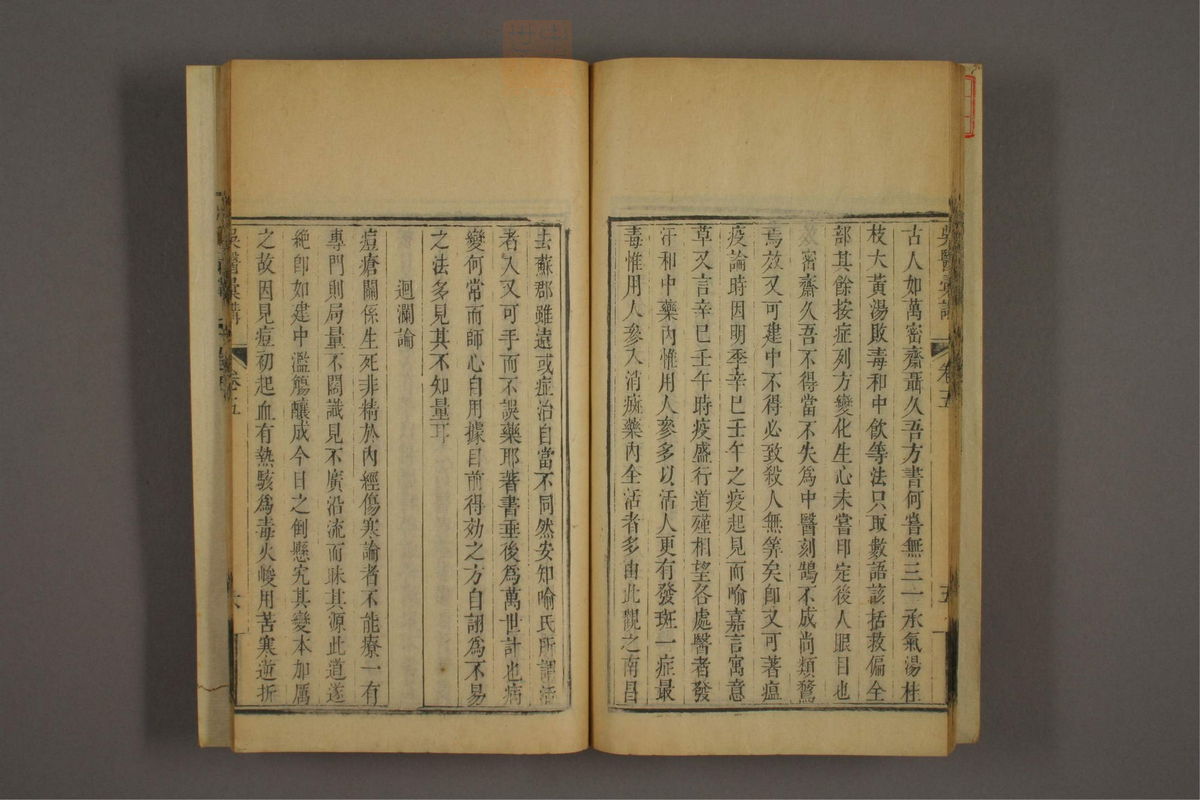 古人如萬密齋聶久吾方書何嘗無三一承氣湯桂
枝大黃湯敗毒和中飲等法只取數語該括救偏全
部其餘按症列方變化生心未嘗印定後人眼目也
效密齋久吾不得當不失為中醫刻鵠不成尚類鶩
焉效又可建中不得必致殺人無筭矣即又可著瘟
疫論時因明季辛巳壬午之疫起見而喻嘉言寓意
草又言辛巳壬午時疫盛行道殣相望各處醫者發
汗和中藥內惟用人參多以活人更有發斑一症最
毒惟用人參入消癍藥內全活者多由此觀之南昌
吳醫彙講 卷五 五
去蘇郡雖遠或症治自當不同然安知喻氏所謂活
者入又可手而不誤藥耶著書垂後為萬世計也病
變何常而師心自用據目前得効之方自詡為不易
之法多見其不知量耳
迴瀾論
痘瘡關係生死非精於內經傷寒論者不能療一有
專門則局量不闊識見不廣沿流而昧其源此道遂
絕即如建中濫觴釀成今日之倒懸究其變本加厲
之故因見痘初起血有熱駭為毒火峻用苦寒逆折
吳醫彙講 卷五 六